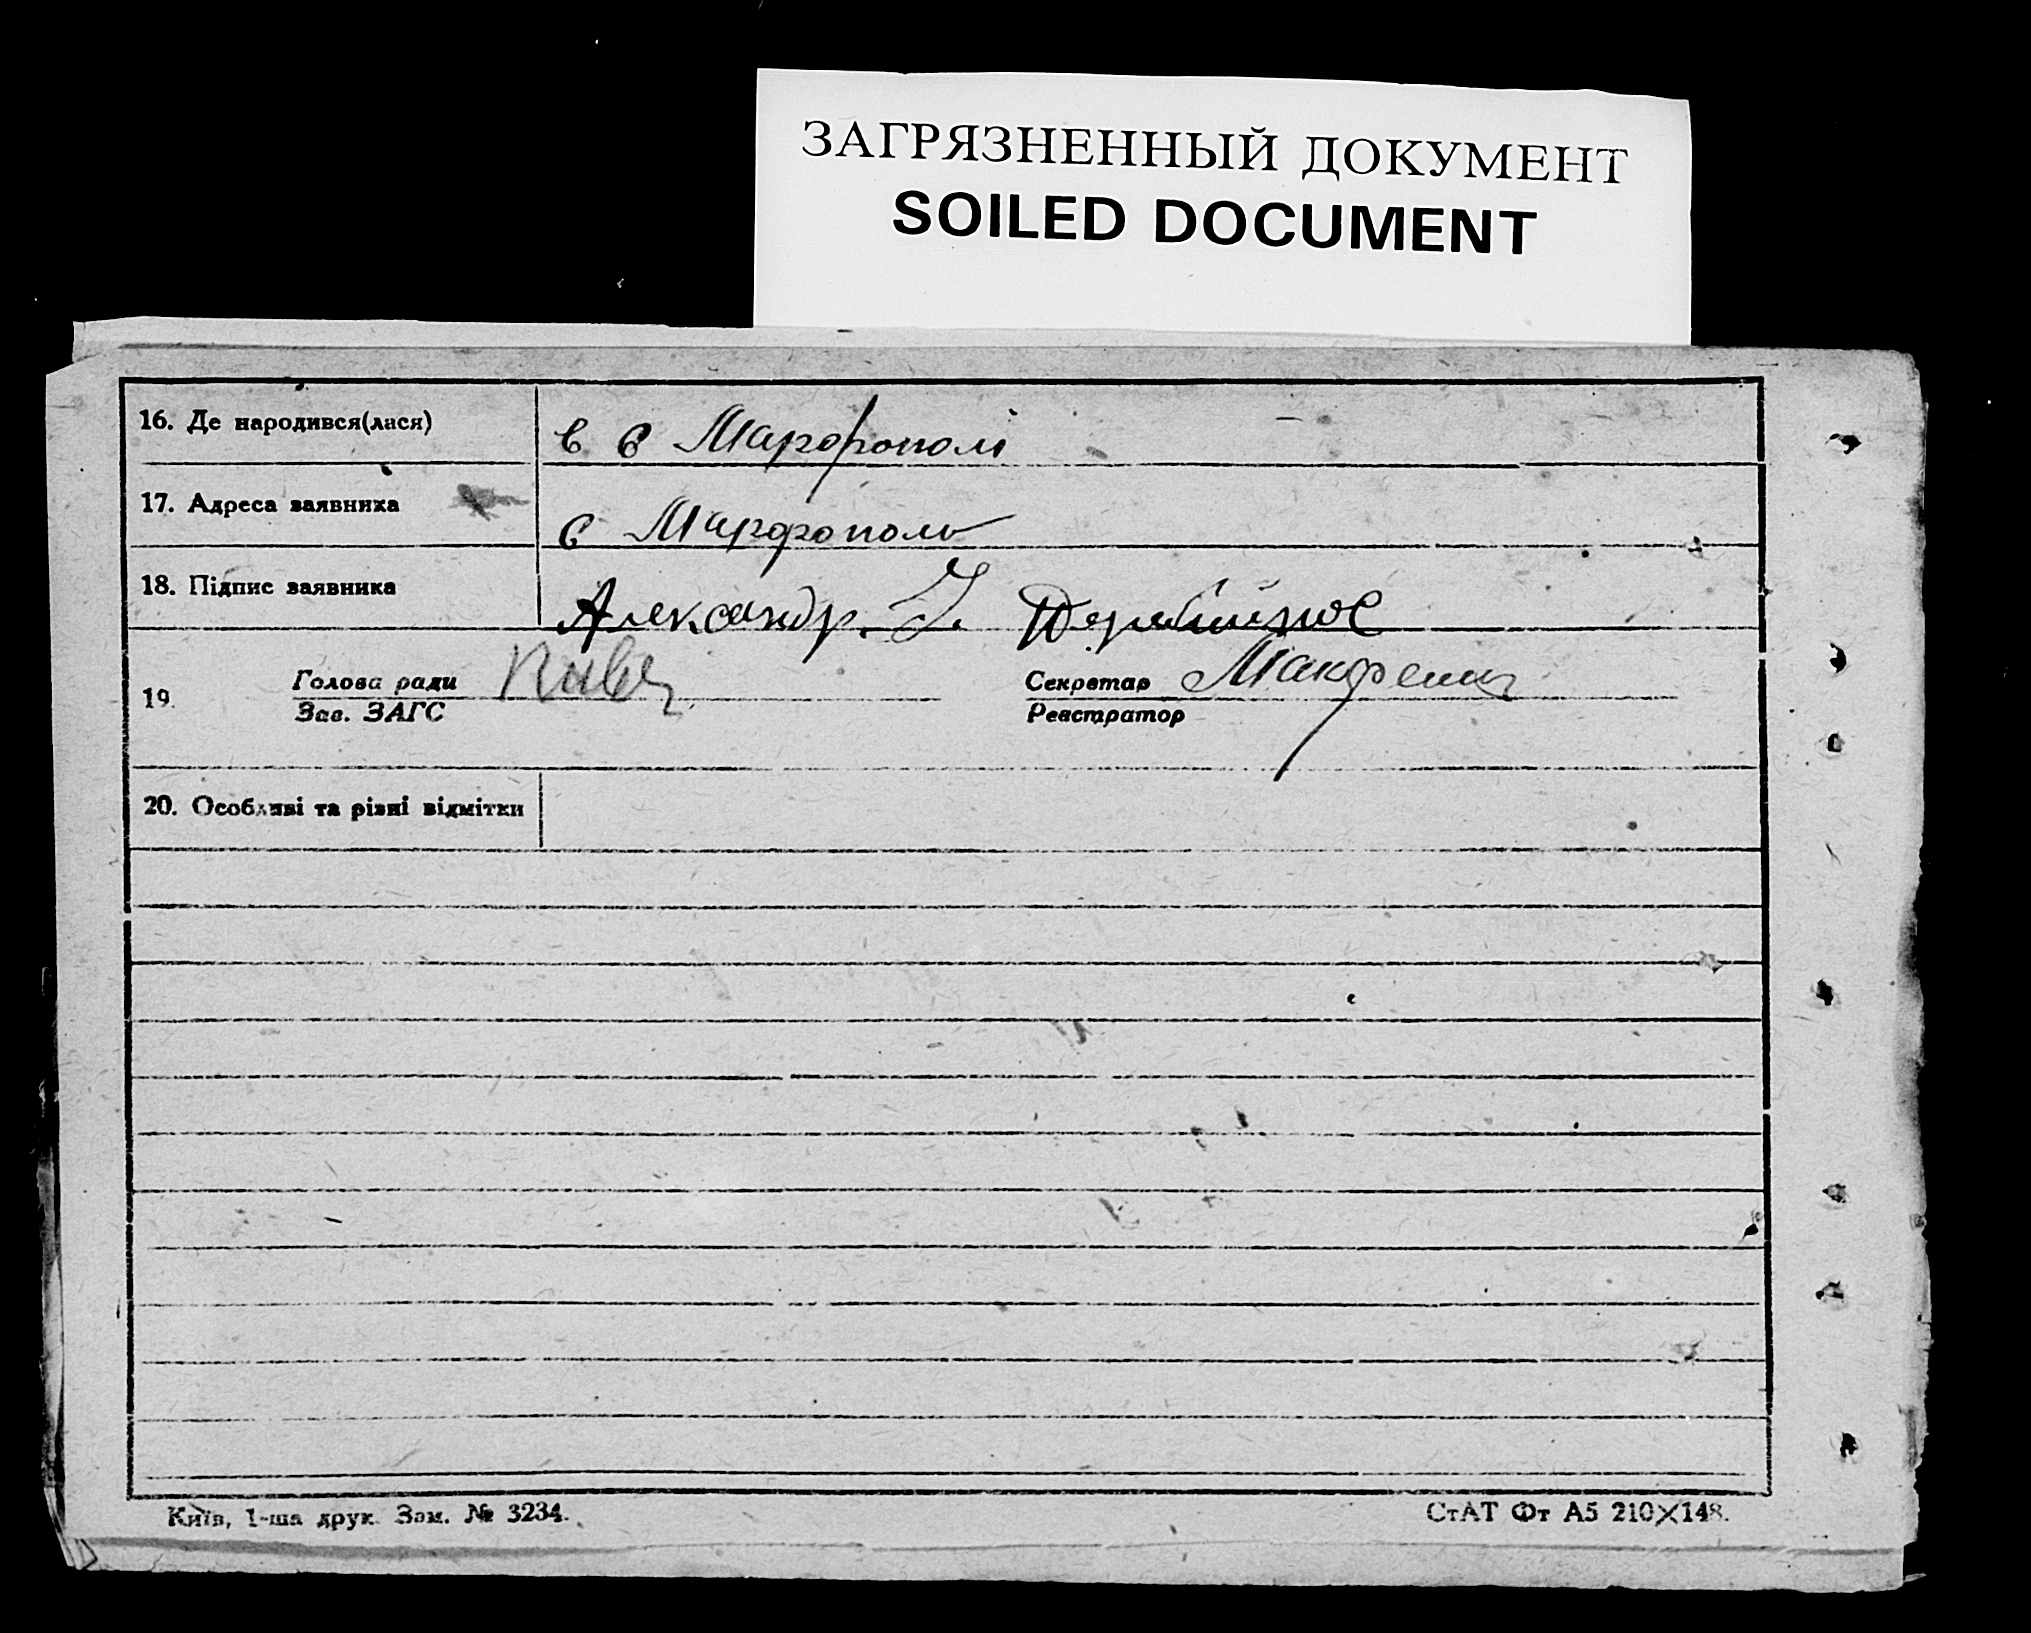 ЗАГРЯЗНЕННЫЙ ДОКУМЕНТ
SOILED DOCUMENT
16. Де народився(лася) в с Марфополі
17. Адреса заявника с Марфополь
18. Підпис заявника Александр. І.
19. Голова ради Секретар
Зав. ЗАГС Реєстратор
20. Особливі та різні відмітки
Київ, 1-ша друк. Зам. № 3234. СтАТ Фт А5 210×148.